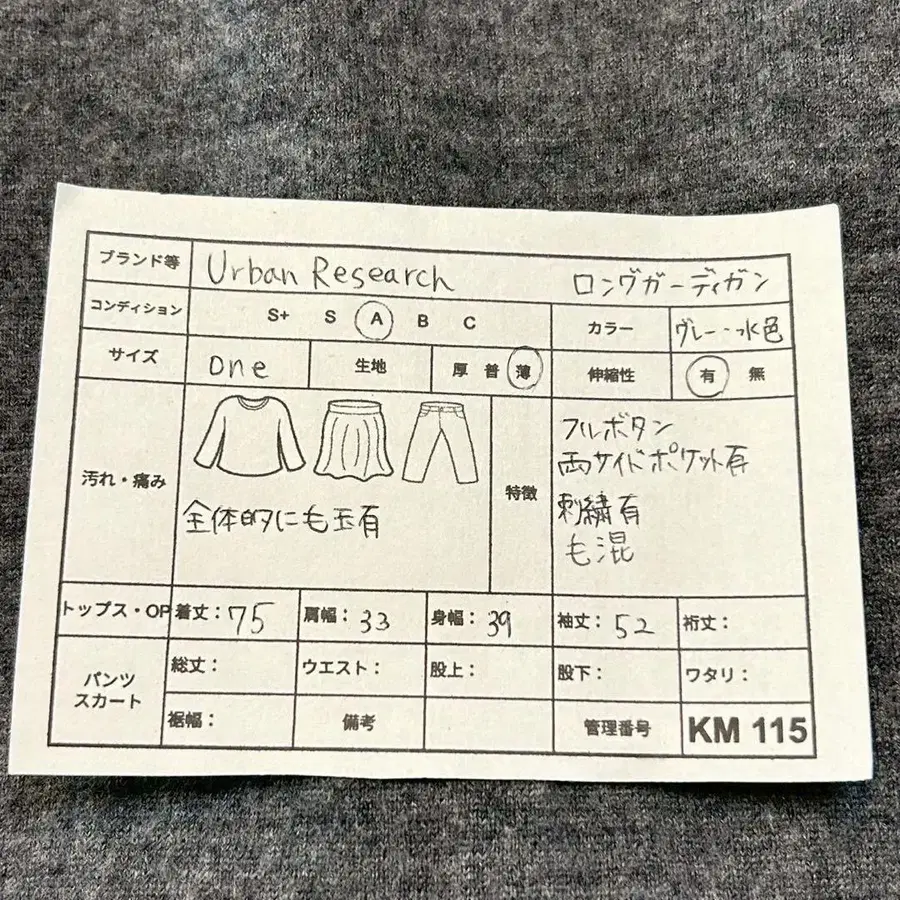 ブランド等 Urban Research ロングガーディガン
コンディション S+ S A B C カラー グレー・水色
サイズ one 生地 厚 普 薄 伸縮性 有 無
汚れ・痛み 全体的にも玉有
特徴
フルボタン
両サイドポケット有
刺繍有
も混
トップス・OP 着丈：75 肩幅：33 身幅：39 袖丈：52 裄丈：
パンツ
スカート
総丈： ウエスト： 股上： 股下： ワタリ：
裾幅： 備考 管理番号 KM 115